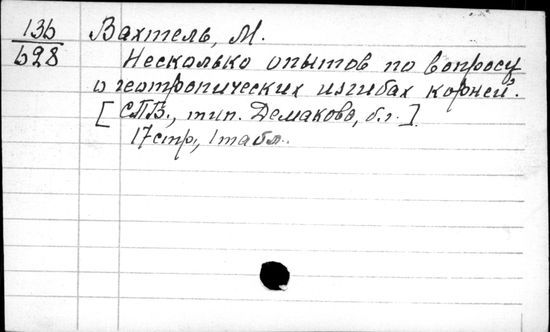 136
628
Вахтель, М.
Несколько опытов по вопросу
о геотропических изгибах корней.
[СПВ., тип. Демакова, б.г.]
17 стр., 1 табл.